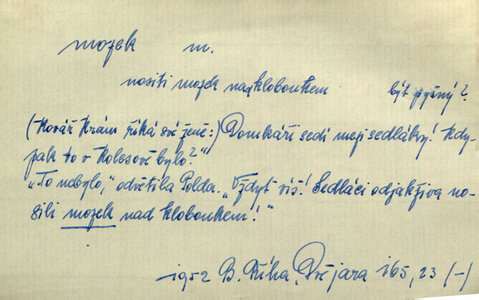 mozek m.
nositi mozek nad kloboukem být pyšný?
(Kovář Krám říká své ženě:) Domkáři sedí mezi sedláky! Kdy-
pak to v Kolesově bylo?"
„To nebylo," odvětila Polda. „Vždyť víš! Sedláci odjakživa no-
sili mozek nad kloboukem!"
1952 B. Říha, Dvě jara 165, 23 (-)